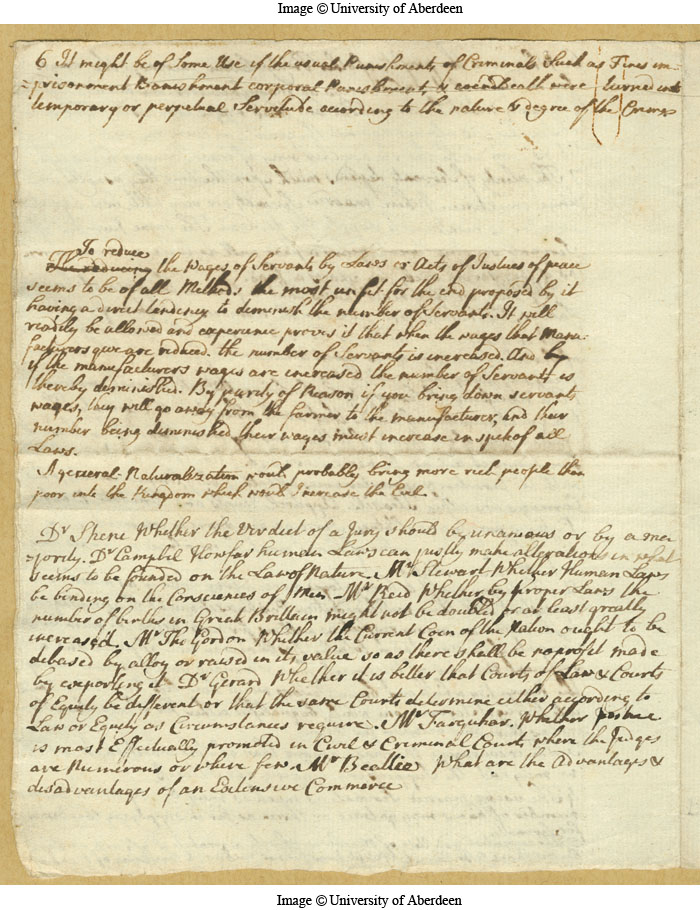 Image © University of Aberdeen
6 It might be of Some Use if the usual Punishments of Criminals Such as Fines im-
-prisonment Banishment corporal Punishment, & even Death were turned into
temporary or perpetual Servitude according to the nature & degree of the Crimes
To reduce
The reducing the Wages of Servants by Laws or Acts of Justices of peace
seems to be of all Methods the most unfit for the end proposed by it
having a direct tendency to diminish the number of Servants. It will
readily be allowed and experience proves it that when the wages that Manu-
facturers give are reduced. the number of Servants is increased. And
if the manufacturers wages are increased the number of Servants is
thereby diminished. By parity of Reason if you bring down servants
wages, they will go away from the farmer to the manufacturer, and their
number being diminished their wages must increase in spite of all
Laws.
A general Naturalization would probably bring more rich people than
poor into the Kingdom which would Increase the Evil.
Dr Skene Whether the Verdict of a Jury should by unanimous or by a ma-
-jority. Dr Campbil How far human Laws can justly make alterations in what
seems to be founded on the Law of Nature. Mr Stewart Whether Human Laws
be binding on the Consciences of Men Mr Reid Whether by proper Laws the
number of births in Great Brittain might not be doubled or at least greatly
increased. Mr Tho Gordon Whither the Current Coin of the Nation ought to be
debased by alloy or raised in its value so as there shall be no profit made
by exporting it Dr Gerard Whether it is better that Courts of Law & Courts
of Equity be different or that the same Courts determine either according to
Law or Equity as Circumstances require. Mr Farquhar. Whether Justice
is most Effectually promoted in Civil & Criminal Courts where the Judges
are Numerous or where few Mr Beattie What are the Advantages &
disadvantages of an Extensive Commerce
Image © University of Aberdeen